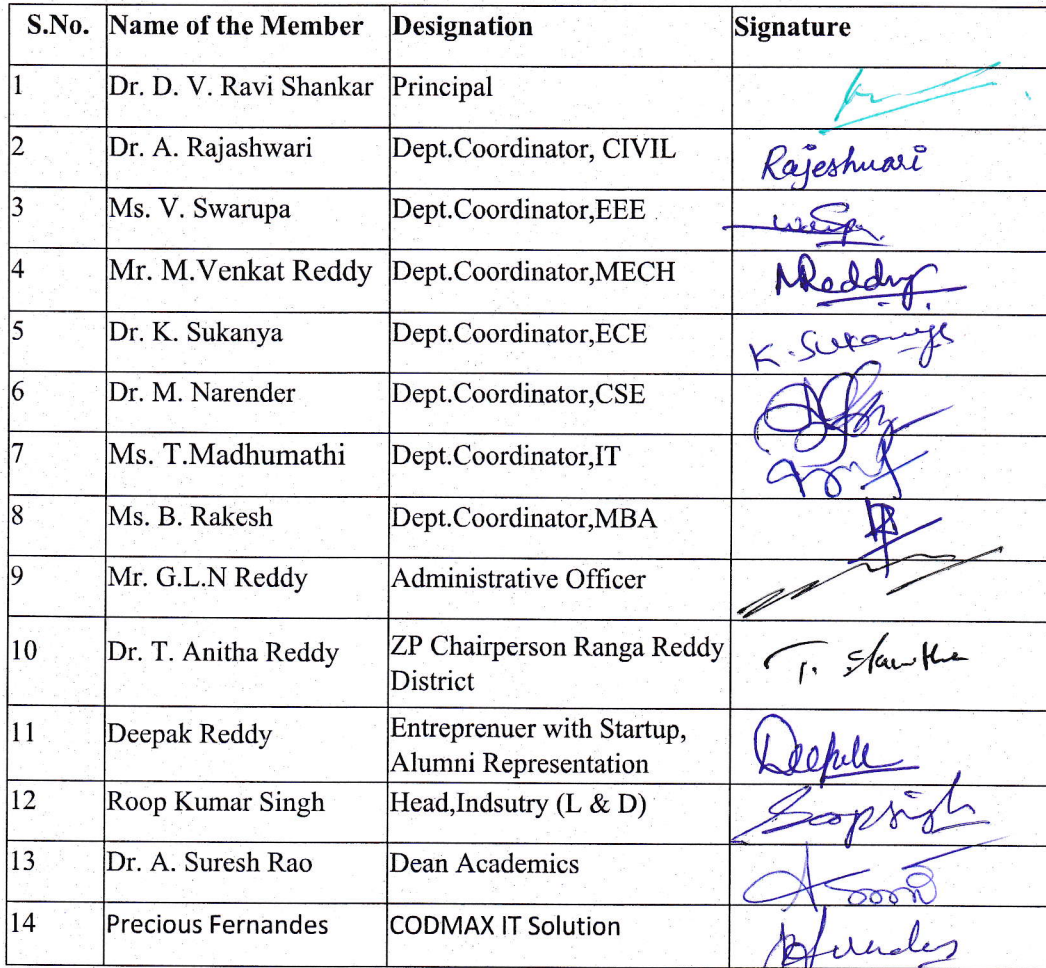 S.No. Name of the Member Designation Signature
1 Dr. D. V. Ravi Shankar Principal
2 Dr. A. Rajashwari Dept.Coordinator, CIVIL Rajeshwari
3 Ms. V. Swarupa Dept.Coordinator,EEE
4 Mr. M.Venkat Reddy Dept.Coordinator,MECH MReddy
5 Dr. K. Sukanya Dept.Coordinator,ECE K. Sukanya
6 Dr. M. Narender Dept.Coordinator,CSE
7 Ms. T.Madhumathi Dept.Coordinator,IT
8 Ms. B. Rakesh Dept.Coordinator,MBA
9 Mr. G.L.N Reddy Administrative Officer
10 Dr. T. Anitha Reddy ZP Chairperson Ranga Reddy
District
11 Deepak Reddy Entreprenuer with Startup,
Alumni Representation
12 Roop Kumar Singh Head,Indsutry (L & D)
13 Dr. A. Suresh Rao Dean Academics
14 Precious Fernandes CODMAX IT Solution